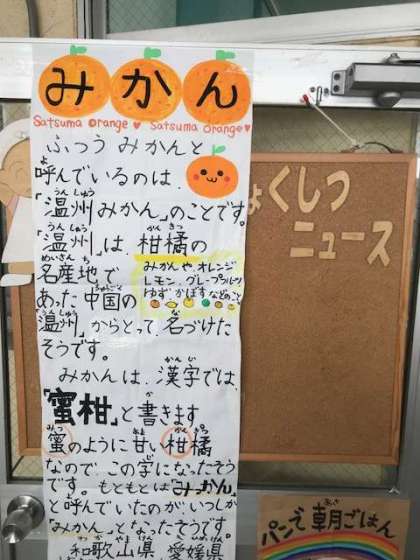 みかん
Satsuma orange♥ Satsuma orange♥
ふつう みかんと
呼んでいるのは、
「温州みかん」のことです。
「温州」は、柑橘の
名産地で
あった 中国の
みかんや、オレンジ
レモン、グレープフルーツ
ゆず、かぼすなどのこと
「温州」からとって、名づけた
そうです。
みかんは、漢字では、
「蜜柑」と書きます
蜜のように甘い柑橘
なので、この字になったそう
です。もともとは「みっかん」
と呼んでいたのが、いつしか
「みかん」となったそうです。
和歌山県 愛媛県
ょくしつ
ニュース
パンで朝ごはん